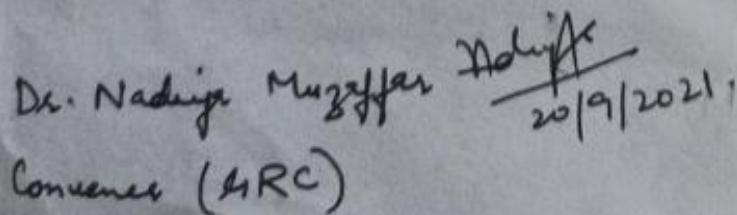 Dr. Nadiya Muzaffar
20/9/2021.
Convener (GRC)